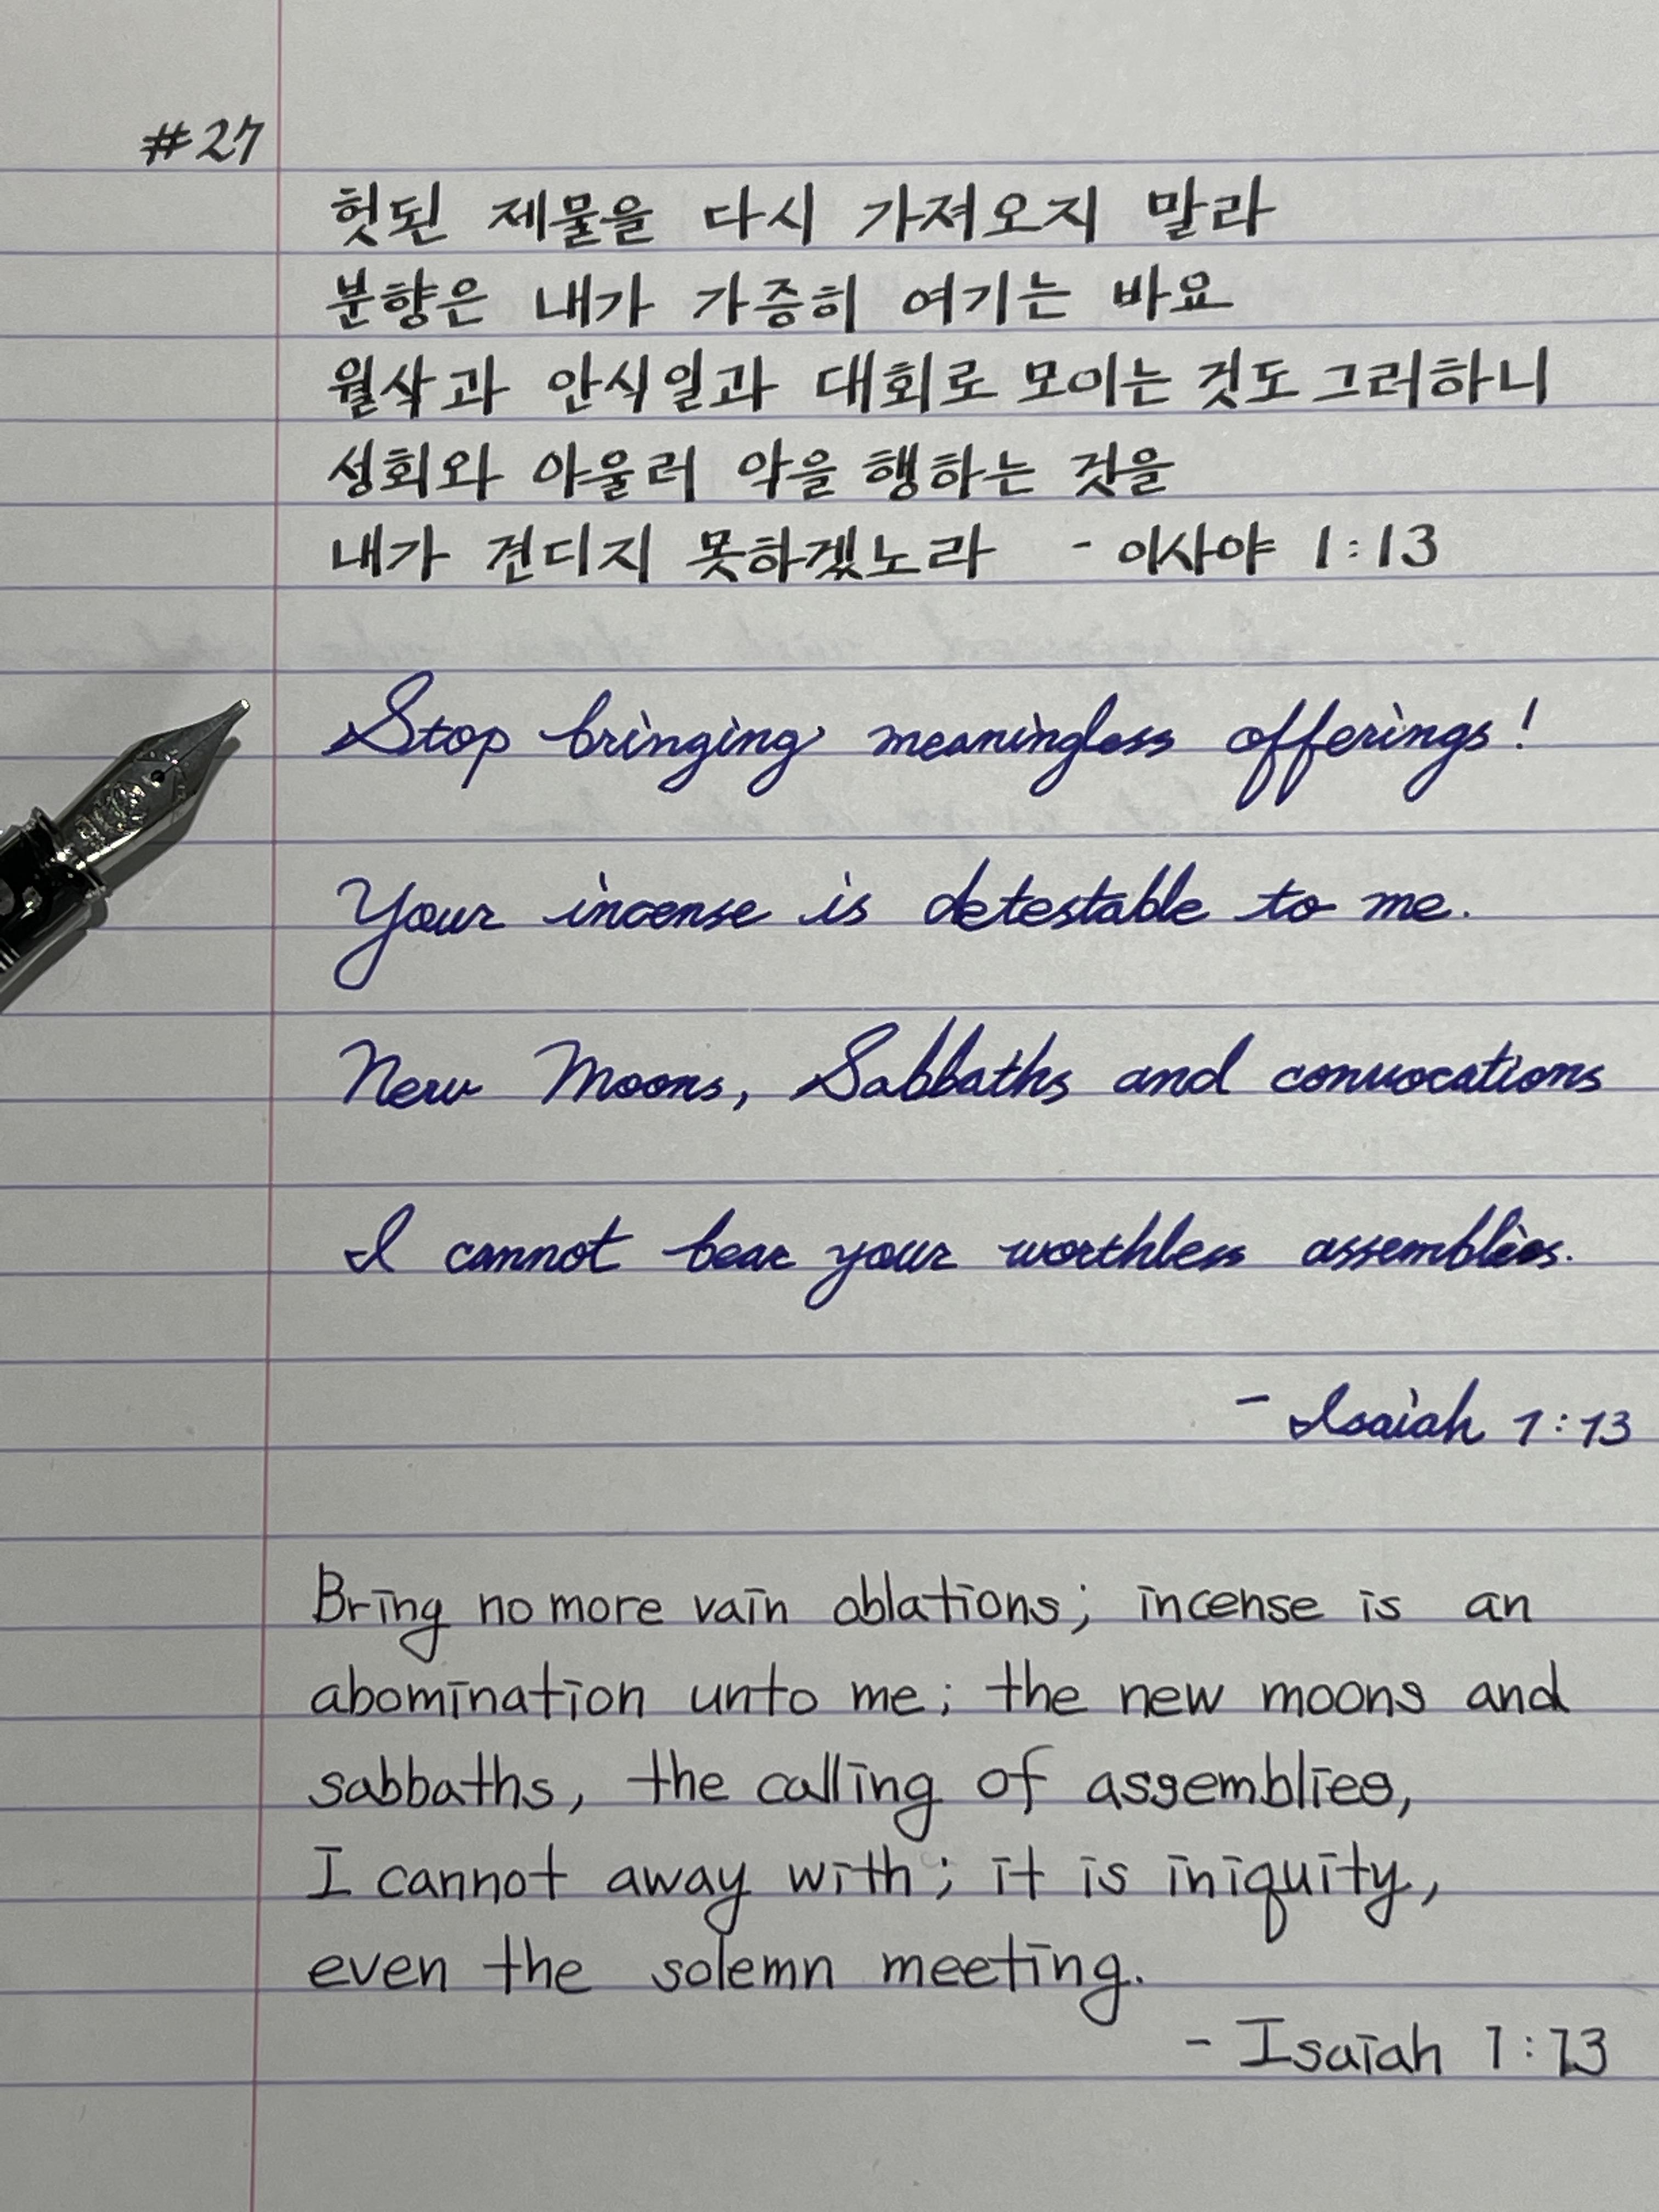 #27
헛된 제물을 다시 가져오지 말라
분향은 내가 가증히 여기는 바요
월삭과 안식일과 대회로 모이는 것도 그러하니
성회와 아울러 악을 행하는 것을
내가 견디지 못하겠노라 - 이사야 1:13
Stop bringing meaningless offerings!
Your incense is detestable to me.
New Moons, Sabbaths and convocations
I cannot bear your worthless assemblies.
- Isaiah 1:13
Bring no more vain oblations; incense is an
abomination unto me; the new moons and
sabbaths, the calling of assemblies,
I cannot away with; it is iniquity,
even the solemn meeting.
- Isaiah 1:13